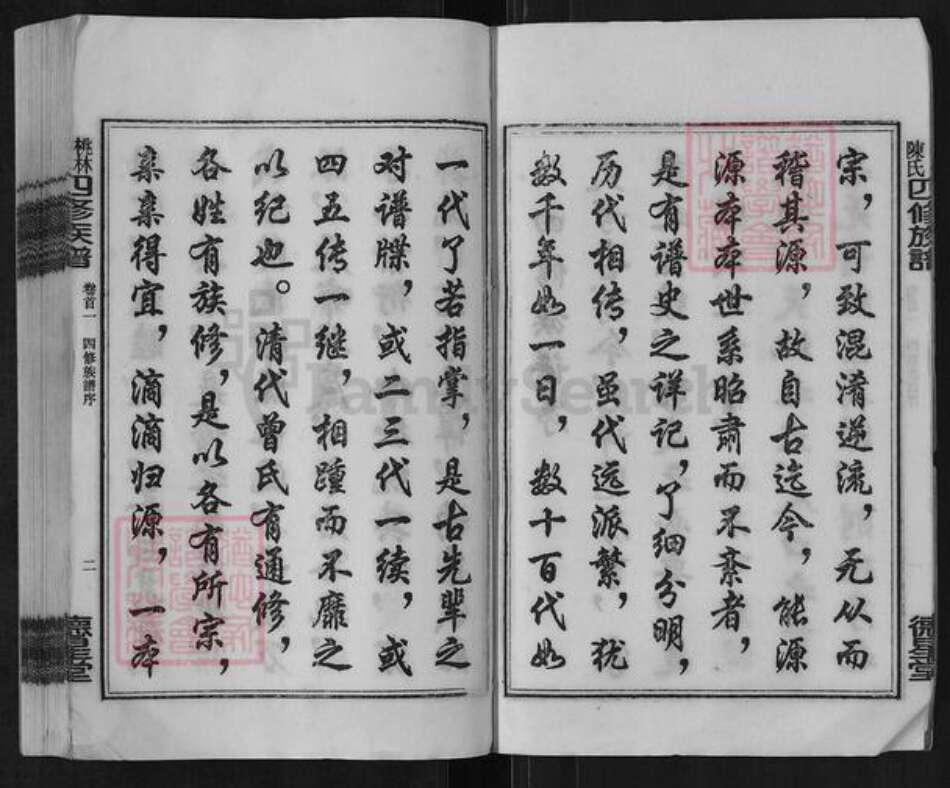 陳氏四修族譜
宗，可致混淆逆流，无从而
稽其源，故自古迄今，能源
源本本世系昭肃而不紊者，
是有谱史之详记，了细分明，
历代相传，虽代远派繁，犹
数千年如一日，数十百代如
德星堂
一代了若指掌，是古先辈之
对谱牒，或二三代一续，或
四五传一继，相踵而不靡之
以纪也。清代曾氏有通修，
各姓有族修，是以各有所宗，
亲亲得宜，滴滴归源，一本
桃林四修族譜
卷首一 四修族譜序
二
德星堂
FamilySearch